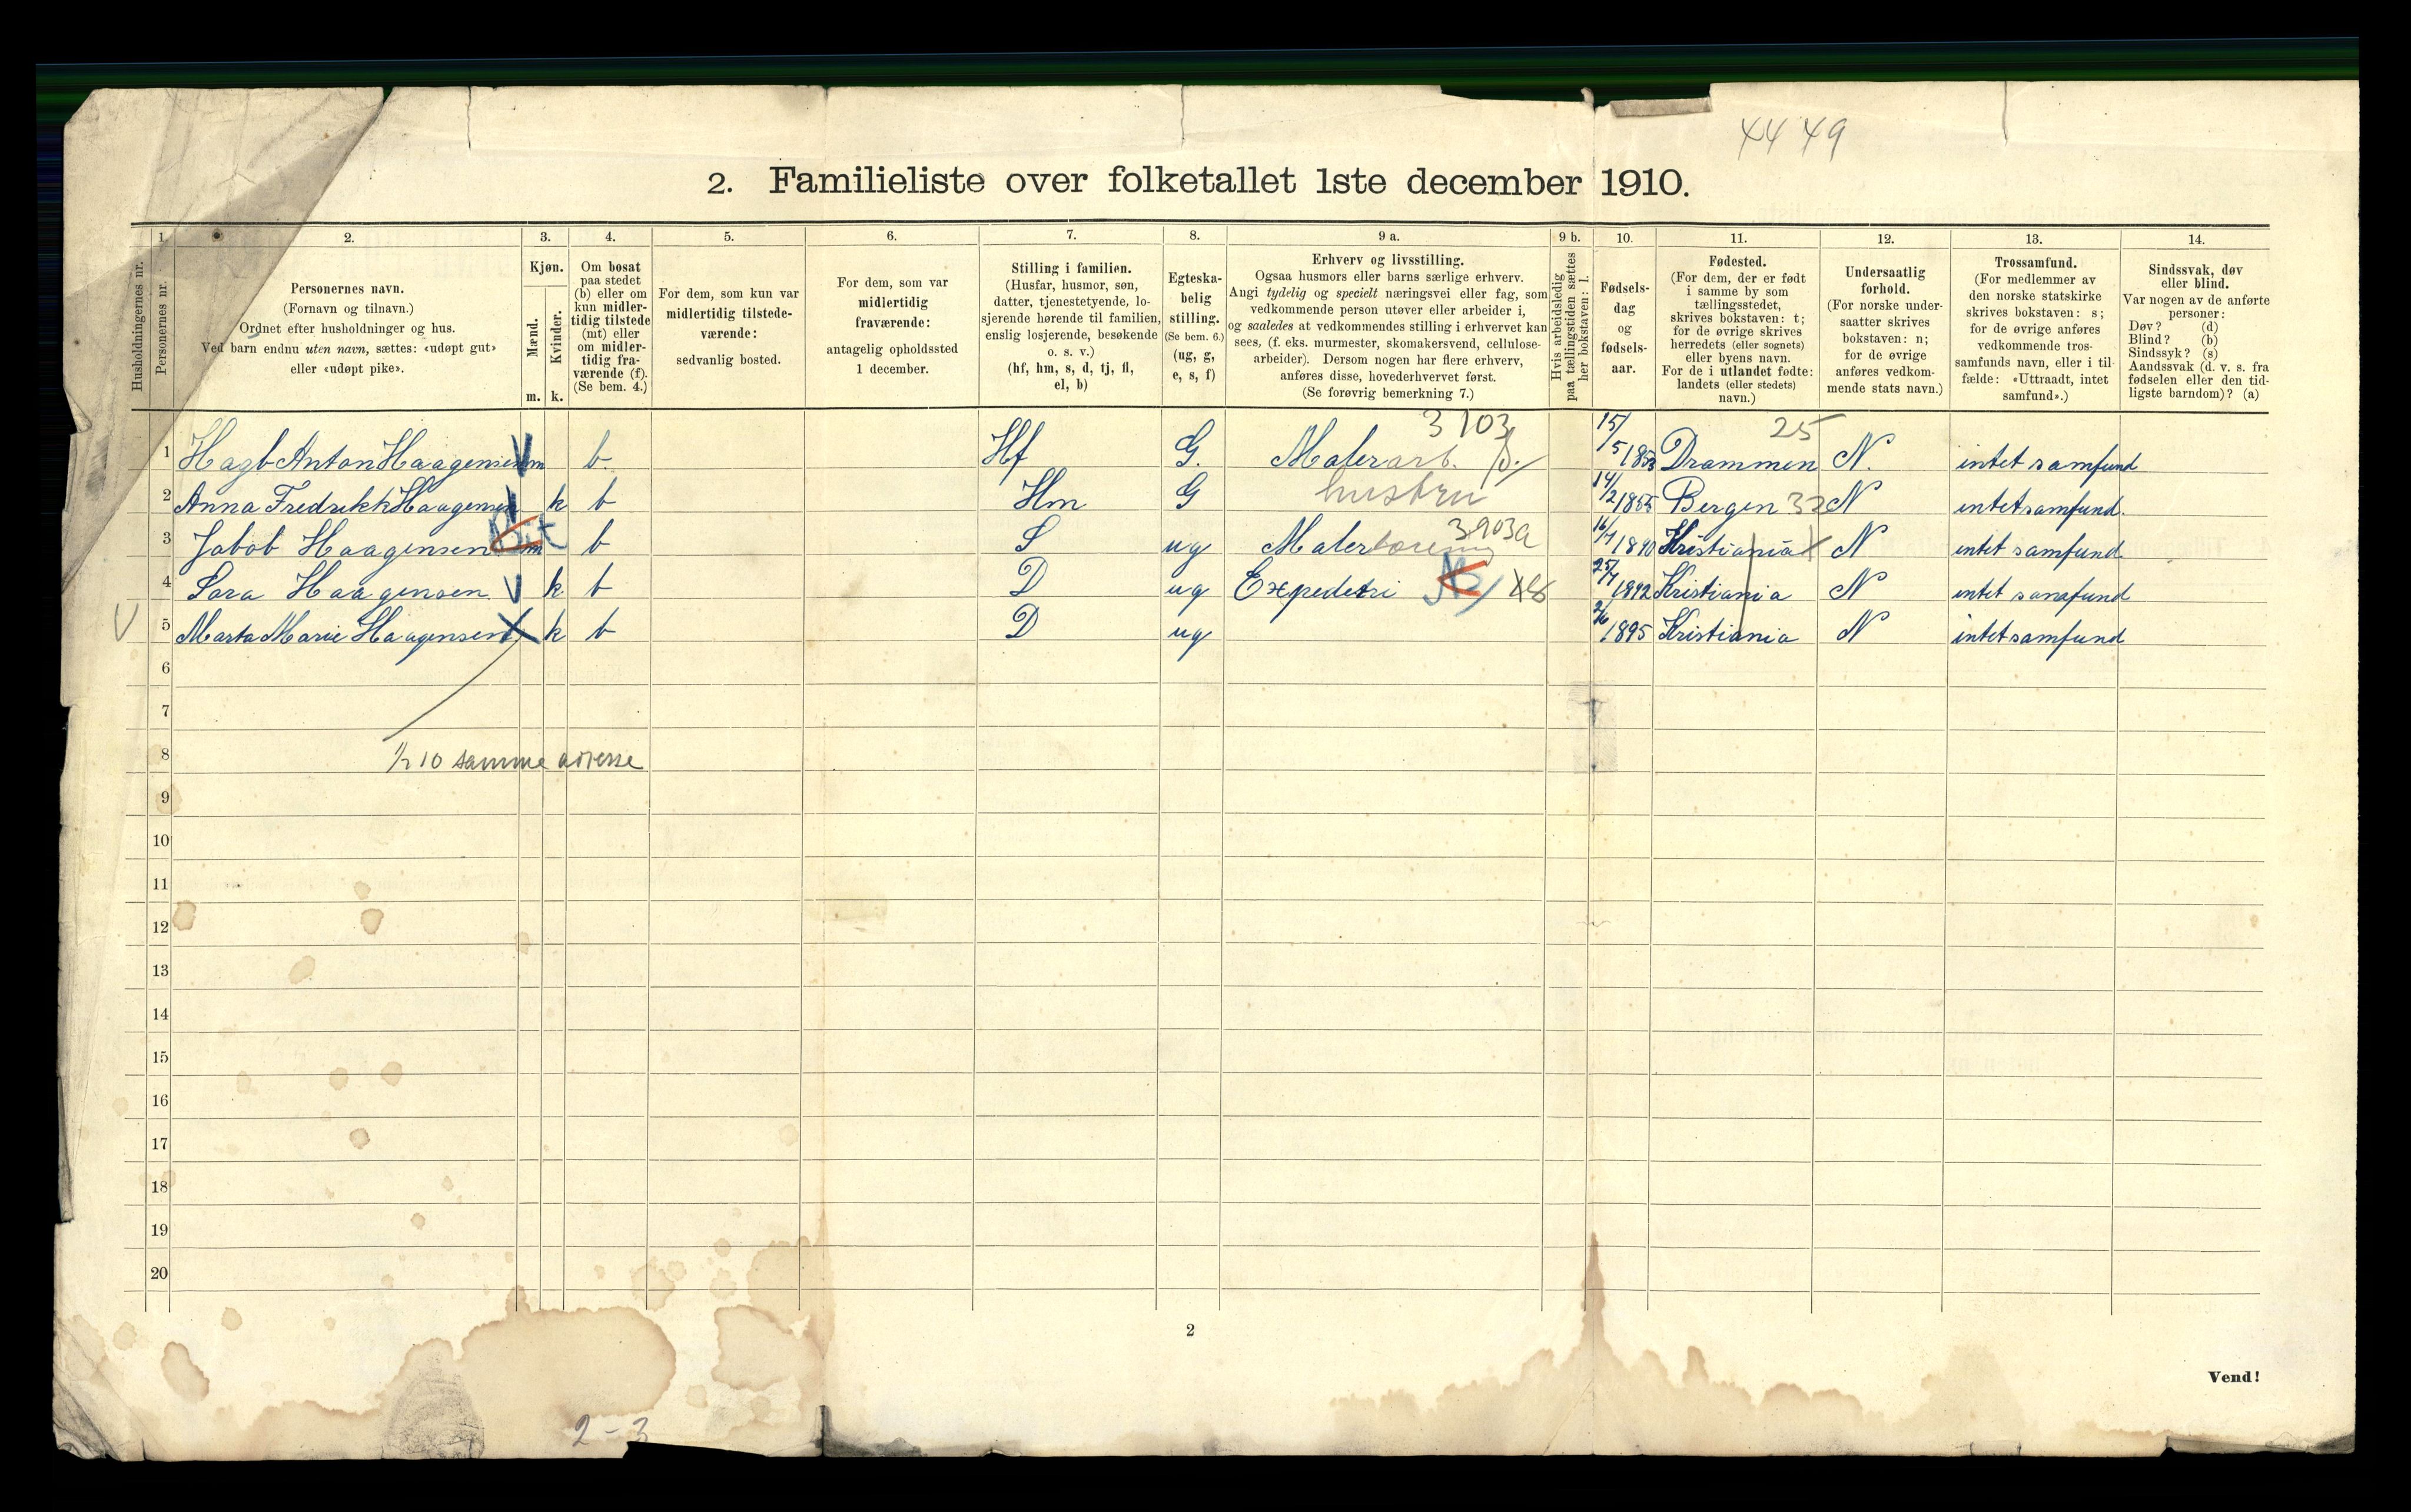 44 49
2. Familieliste over folketallet 1ste december 1910.
1. 2. 3. 4. 5. 6. 7. 8. 9 a. 9 b. 10. 11. 12. 13. 14.
Husholdningernes nr.
Personernes nr.
Personernes navn.
(Fornavn og tilnavn.)
Ordnet efter husholdninger og hus.
Ved barn endnu uten navn, sættes: «udøpt gut»
eller «udøpt pike».
Kjøn.
Mænd.
Kvinder.
m. k.
Om bosat
paa stedet
(b) eller om
kun midler-
tidig tilstede
(mt) eller
om midler-
tidig fra-
værende (f).
(Se bem. 4.)
For dem, som kun var
midlertidig tilstede-
værende:
sedvanlig bosted.
For dem, som var
midlertidig
fraværende:
antagelig opholdssted
1 december.
Stilling i familien.
(Husfar, husmor, søn,
datter, tjenestetyende, lo-
sjerende hørende til familien,
enslig losjerende, besøkende
o. s. v.)
(hf, hm, s, d, tj, fl,
el, b)
Egteska-
belig
stilling.
(Se bem. 6.)
(ug, g,
e, s, f)
Erhverv og livsstilling.
Ogsaa husmors eller barns særlige erhverv.
Angi tydelig og specielt næringsvei eller fag, som
vedkommende person utøver eller arbeider i,
og saaledes at vedkommendes stilling i erhvervet kan
sees, (f. eks. murmester, skomakersvend, cellulose-
arbeider). Dersom nogen har flere erhverv,
anføres disse, hovederhvervet først.
(Se forøvrig bemerkning 7.)
Hvis arbeidsledig
paa tællingstiden sættes
her bokstaven: l.
Fødsels-
dag
og
fødsels-
aar.
Fødested.
(For dem, der er født
i samme by som
tællingsstedet,
skrives bokstaven: t;
for de øvrige skrives
herredets (eller sognets)
eller byens navn.
For de i utlandet fødte:
landets (eller stedets)
navn.)
Undersaatlig
forhold.
(For norske under-
saatter skrives
bokstaven: n;
for de øvrige
anføres vedkom-
mende stats navn.)
Trossamfund.
(For medlemmer av
den norske statskirke
skrives bokstaven: s;
for de øvrige anføres
vedkommende tros-
samfunds navn, eller i til-
fælde: «Uttraadt, intet
samfund».)
Sindssvak, døv
eller blind.
Var nogen av de anførte
personer:
Døv? (d)
Blind? (b)
Sindssyk? (s)
Aandssvak (d. v. s. fra
fødselen eller den tid-
ligste barndom)? (a)
3103 25
1 Hagb Anton Haagensen m b Hf G. Maler arb. 15/5 1853 Drammen N. intet samfund
2 Anna Fredrikk Haagensen k b Hm G hustru 14/2 1855 Bergen 32 N intet samfund.
3903a
3 Jabob Haagensen m b S ug Maler 16/7 1890 Kristiania N intet samfund
4 Sara Haagensen V k b D ug Expedetri 25/7 1892 Kristiania N intet samfund
V 5 Marta Marie Haagensen X k b D ug 2/6 1895 Kristiania N intet samfund
6
7
8 1/2 10 samme adresse
9
10
11
12
13
14
15
16
17
18
19
20
2
Vend!
2-3